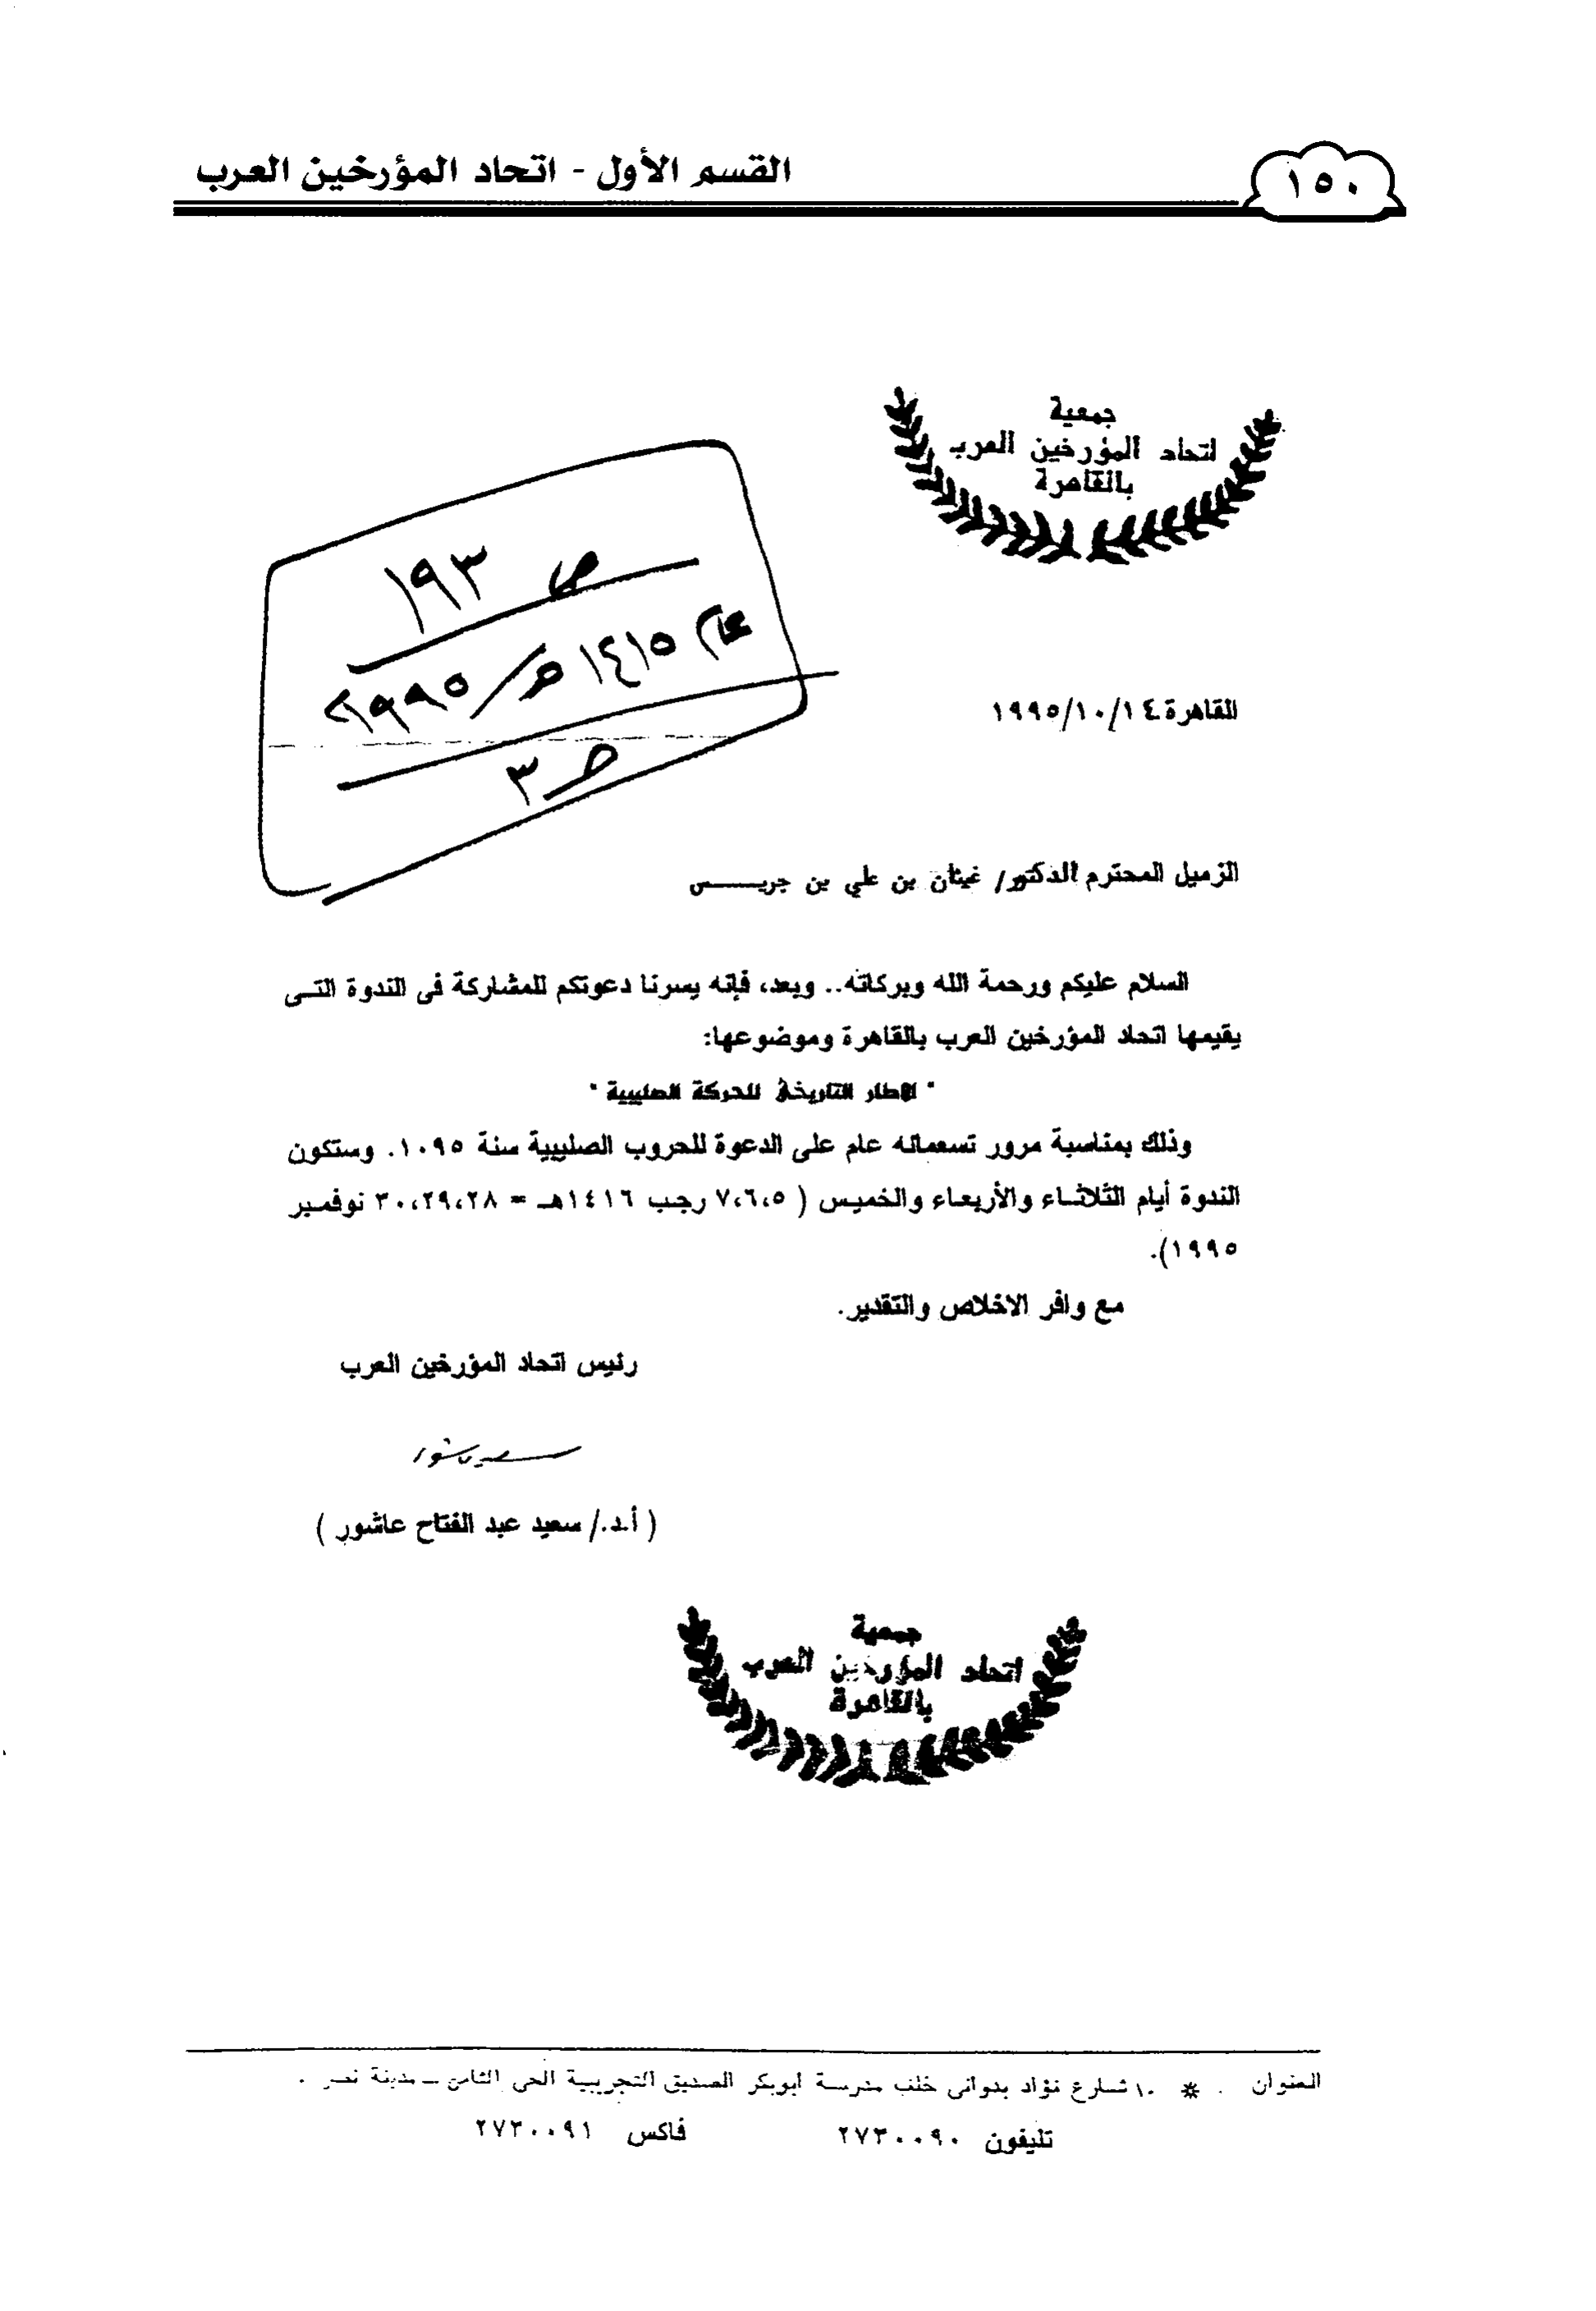 القسم الأول - اتحاد المؤرخين العرب
١٥٠
جمعية
اتحاد المؤرخين العرب
بالقاهرة
ص ١٩٣
عام ١٤١٥هـ / ١٩٩٥م
ص٣
القاهرة ١٩٩٥/١٠/١٤
الزميل المحترم الدكتور/ غيثان بن علي بن جريـــــس
السلام عليكم ورحمة الله وبركاته.. وبعد، فإنه يسرنا دعوتكم للمشاركة فى الندوة التـى
يقيمها اتحاد المؤرخين العرب بالقاهرة وموضوعها:
" الإطار التاريخى للحركة الصليبية "
وذلك بمناسبة مرور تسعمائه عام على الدعوة للحروب الصليبية سنة ١٠٩٥. وستكون
الندوة أيام الثلاثـاء والأربعـاء والخميـس ( ٧،٦،٥ رجب ١٤١٦هـ = ٣٠،٢٩،٢٨ نوفمبر
١٩٩٥).
مع وافر الاخلاص والتقدير.
رئيس اتحاد المؤرخين العرب
سعيد عاشور
( أ.د./ سعيد عبد الفتاح عاشور )
جمعية
اتحاد المؤرخين العرب
بالقاهرة
العنوان . * ١٠ شارع فؤاد بدوانى خلف مدرسة ابوبكر الصديق التجريبية الحى الثامن – مدينة نصر .
تليفون ٢٧٣٠٠٩٠ فاكس ٢٧٣٠٠٩١